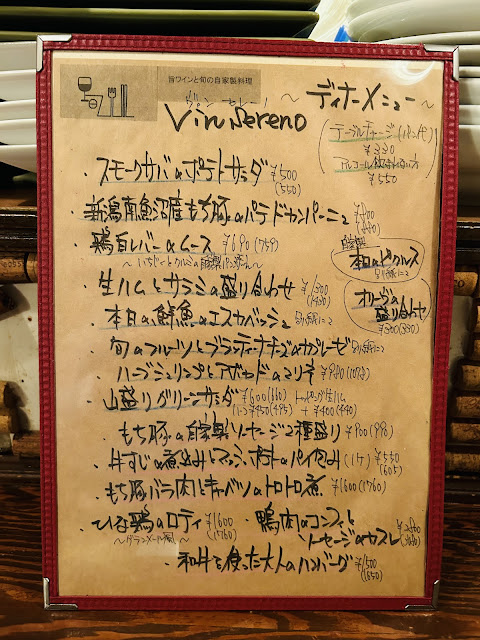 旨ワインと旬の自家製料理
～ディナーメニュー～
ヴィン セレーノ
Vin Sereno
テーブルチャージ(パン代)
¥330
¥550
・スモークサバのポテトサラダ ¥500
(550)
・新潟南魚沼産もち豚のパテドカンパーニュ
・鶏白レバーのムース ¥690(759)
自家製
和のピクルス
別紙に
・生ハムとサラミの盛り合わせ ¥1300
(1430)
オリーブの
盛り合わせ
¥300(330)
・本日の鮮魚のエスカベッシュ 別紙に
・旬のフルーツとブラッティーナチーズのカプレーゼ 別紙に
・ハーブシュリンプとアボカドのマリネ ¥980(1078)
・山盛りグリーンサラダ ¥600(660) トッピング生ハム
(ハーフ¥450(495) +¥400(440)
・もち豚の自家製ソーセージ2種盛り ¥900(990)
・牛すじの煮込みとマッシュポテトのパイ包み(1ケ) ¥550
(605)
・もち豚バラ肉とキャベツのトロトロ煮 ¥1600(1760)
・ひな鶏のロティ ¥1600
(1760)
～グランメール風～
・鴨肉のコンフィと
ソーセージのカスレ
・和牛を使った大人のハンバーグ ¥1500
(1650)